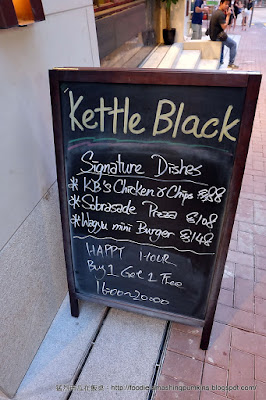 Kettle Black
Signature Dishes
* KB's Chicken & Chips $88
* Sobrasade Pizza $108
* Wagyu mini Burger $148
HAPPY HOUR
Buy 1 Get 1 Free
1600~2000
http://foodiesmashingpumkins.blogspot.com